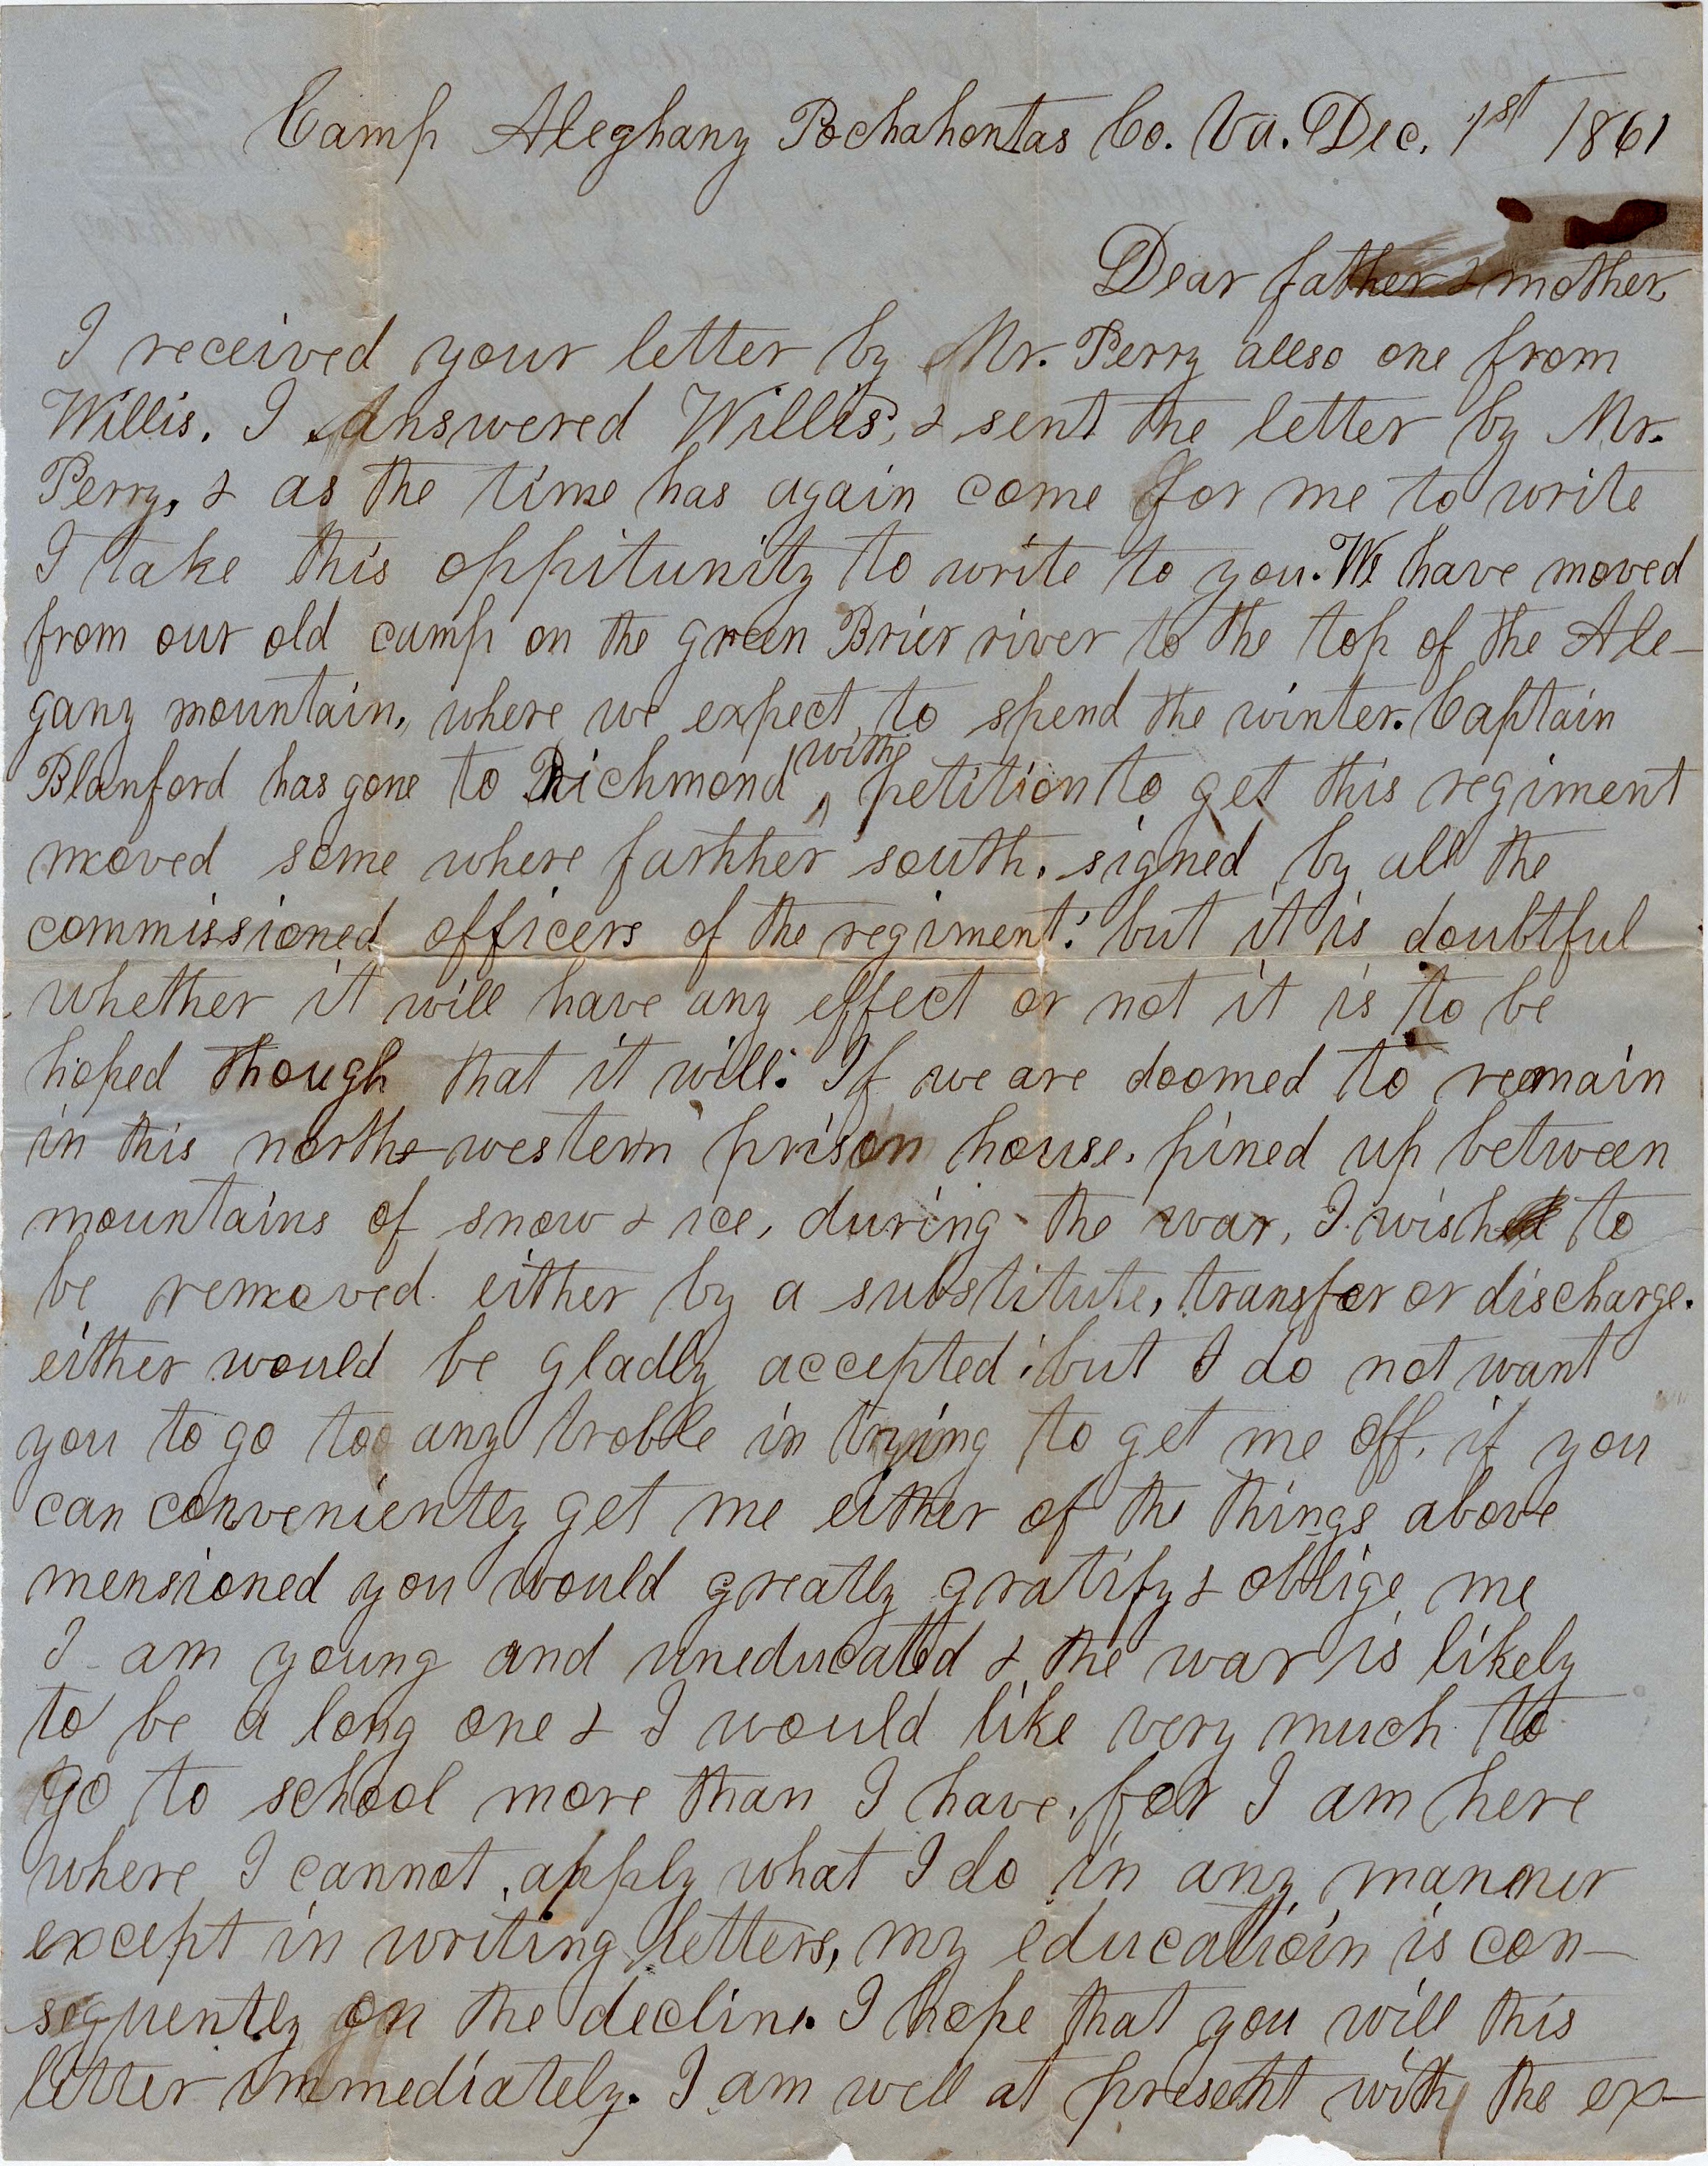 Camp Aleghany Pochahontas Co. Va. Dec. 1st 1861
Dear father & mother,
I received your letter by Mr. Perry allso one from
Willis. I Answered Willis, & sent the letter by Mr.
Perry, & as the time has again come for me to write
I take this oppitunity to write to you. We have moved
from our old camp on the green Brier river to the top of the Ale-
gany mountain, where we expect to spend the winter. Captain
Blanford has gone to Richmond with petition to get this regiment
moved some where farhher south. signed by all the
commissioned officers of the regiment: but it is doubtful
whether it will have any effect or not it is to be
hoped though that it will. If we are doomed to remain
in this north-western prison house. pined up between
mountains of snow & ice, during the war, I wish to
be removed either by a substitute, transfer or discharge.
either would be gladly accepted; but I do not want
you to go too any troble in trying to get me off, if you
can conveniently get me either of the things above
mensioned you would greatly gratify & oblige me
I am young and uneducated & the war is likely
to be a long one & I would like very much to
go to school more than I have, for I am here
where I cannot apply what I do in any manner
except in writing letters, my education is con-
sequently on the decline. I hope that you will this
letter immediately. I am well at present with the ex-